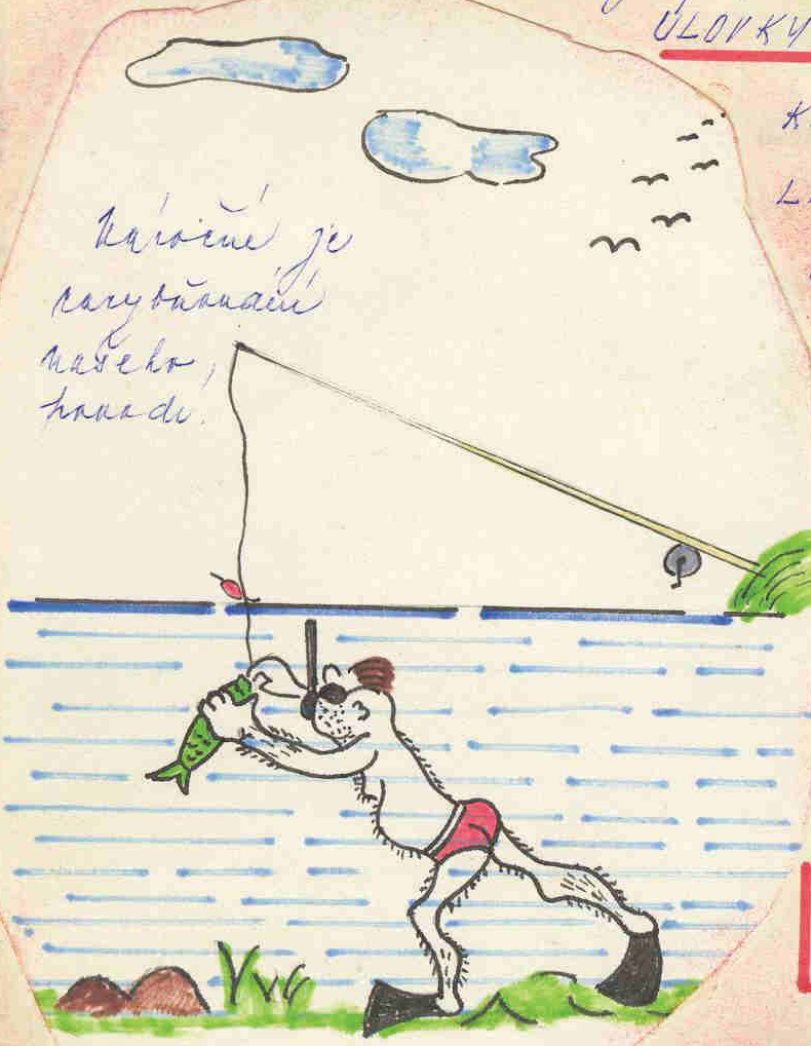 ÚLOVKY
K
Náročné je
zarybňování
našeho
povodí.